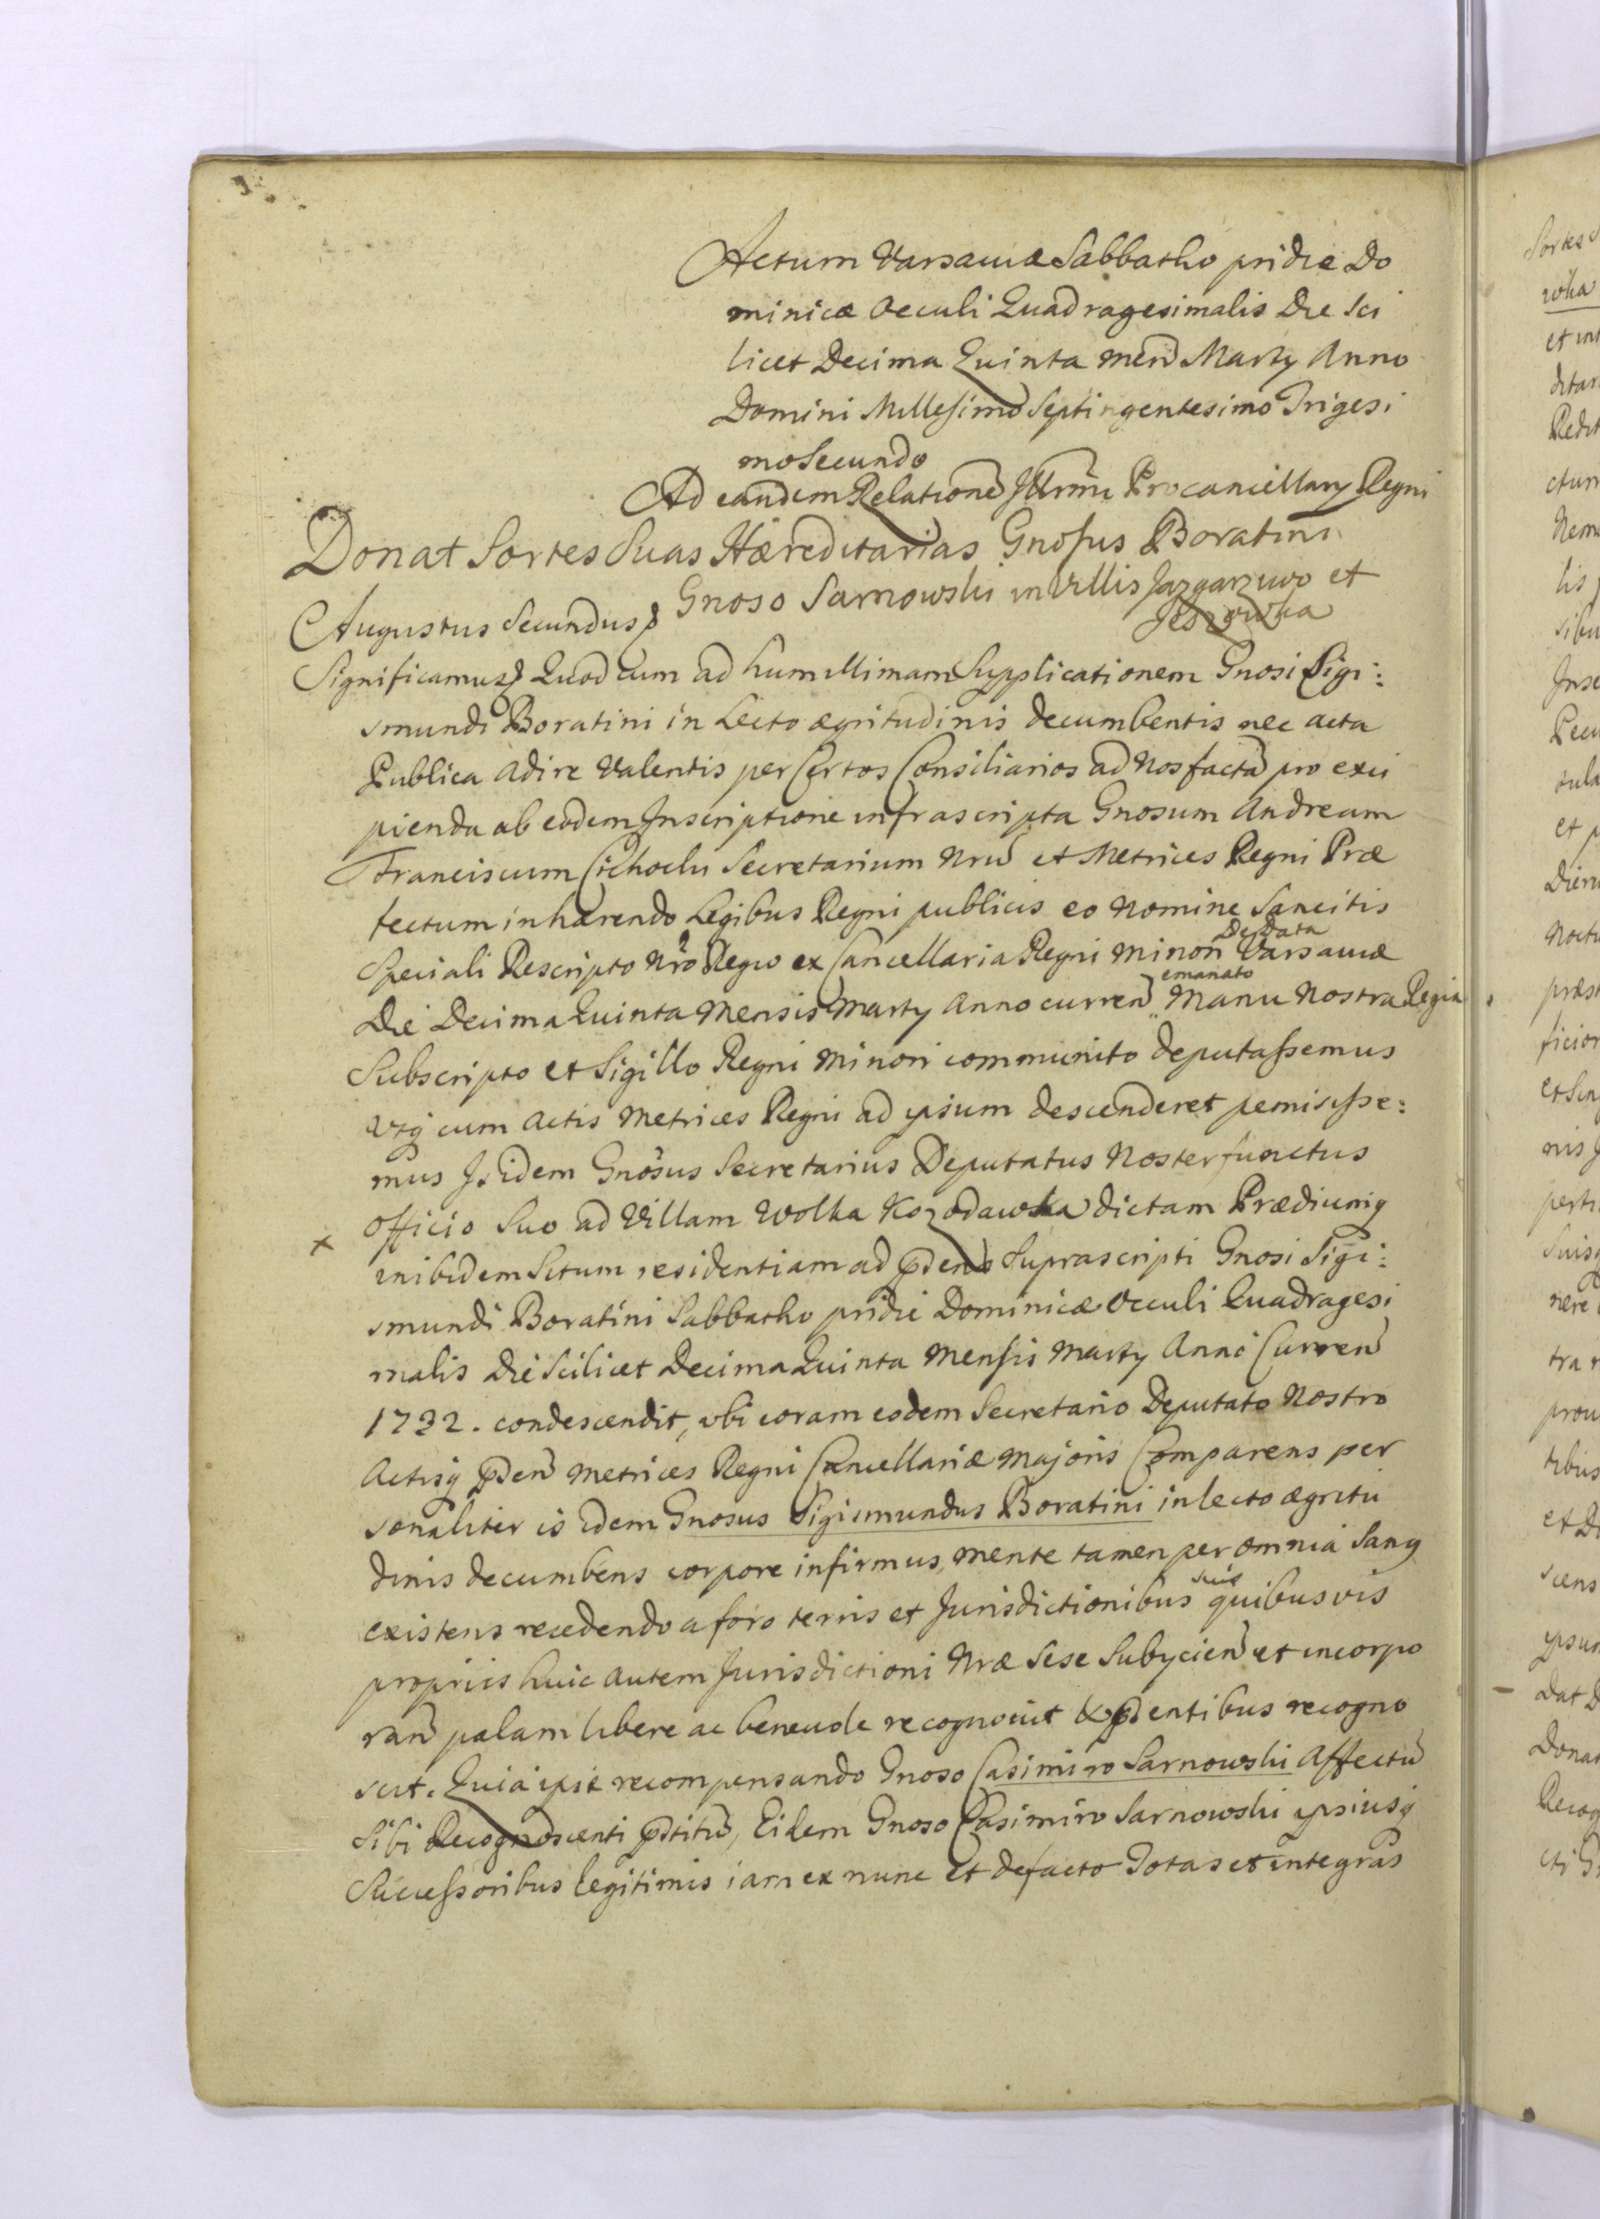 Actum Varsaviæ Sabbatho pridie Do
minicæ Occuli Quadragesimalis Die Sci
licet Decima Quinta Mens̃ Marty Anno
Domini Millesimo Septingentesimo Trigesi
mo Secundo
Ad eandem Relationẽ Illrm̃i Procancellary Regni
Donat Sortes Suas Hæreditarias Gnosus Boratini
Gnoso Sarnowski in Villis Jazgarzewo et
Augustus Secundus
Significamus Quod cum ad humillimam Supplicationem Gnosi Sigi:
smundi Boratini in Lecto ægritudinis decumbentis nec acta
Publica adire Valentis per Certos Consiliarios ad Nos factã pro exci
pienda ab eodem Inscriptione infrascripta Gnosum Andream
Franciscum Cichocki Secretarium Nrũ et Metrices Regni Præ
fectum inhærendo Legibus Regni publicis eo Nomine Sancitis
De Data
Speciali Rescripto Nr̃o Regio ex Cancellaria Regni minori Varsaviæ
emanato
Die Decima Quinta Mensis Marty Anno curreñ Manu Nostra Regia
Subscripto et Sigillo Regni Minori communito deputassemus
Utq cum Actis Metrices Regni ad ipsum descenderet permisisse:
mus Is idem Gnosus Secretarius Deputatus Noster functus
Officio Suo ad Villam Wolka Kozodawska dictam Prædiumq
x
inibidem Situm residentiam ad p̃dens Suprascripti Gnosi Sigi:
smundi Boratini Sabbatho pridie Dominicæ Occuli Quadragesi
malis die Scilicet Decima Quinta Mensis Marty Anni Curreñ
1732. condescendit, ubi coram eodem Secretario Deputato Nostro
Actisq p̃deñ Metrices Regni Cancellariæ Majoris Comparens per
sonaliter is idem Gnosus Sigismundus Boratini in lecto ægritu
dinis decumbens corpore infirmus, mente tamen per omnia Sanq
suis
existens recedendo a foro terris et Jurisdictionibus quibusvis
propriis huic autem Jurisdictioni Nræ Sese Subycieñ et incorpo
rañ palam libere ac benevole recognovit & p̃dentibus recogno
scit. Quia ipse recompensando Gnoso Casimiro Sarnowski Affectũ
Sibi Recognoscenti p̃stitũ, Eidem Gnoso Casimiro Sarnowski ipsiusq
Successoribus legitimis iam ex nunc et defacto Totas et integras